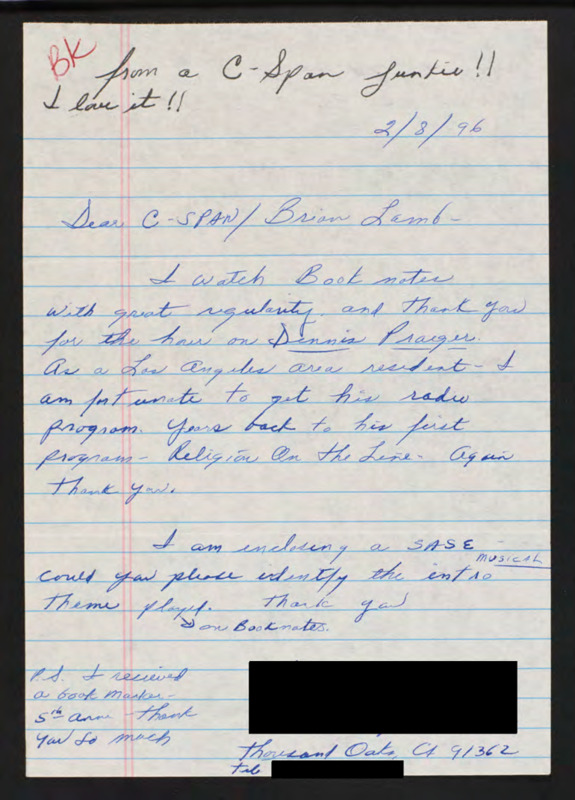 BK
from a C-Span Junkie!!
I love it!!
2/8/96
Dear C-SPAN/Brian Lamb-
I watch Book notes
with great regularity. and thank you
for the hour on Dennis Praeger.
As a Los Angeles area resident- I
am fortunate to get his radio
program. Years back to his first
program- Religion On the Line- Again
thank you.
I am enclosing a SASE
could you please identify the MUSICAL intro
theme played. Thank you
on Booknotes.
P.S. I recieved
a book marker-
5th Anni - thank
you so much
Thousand Oaks, CA 91362
Tele